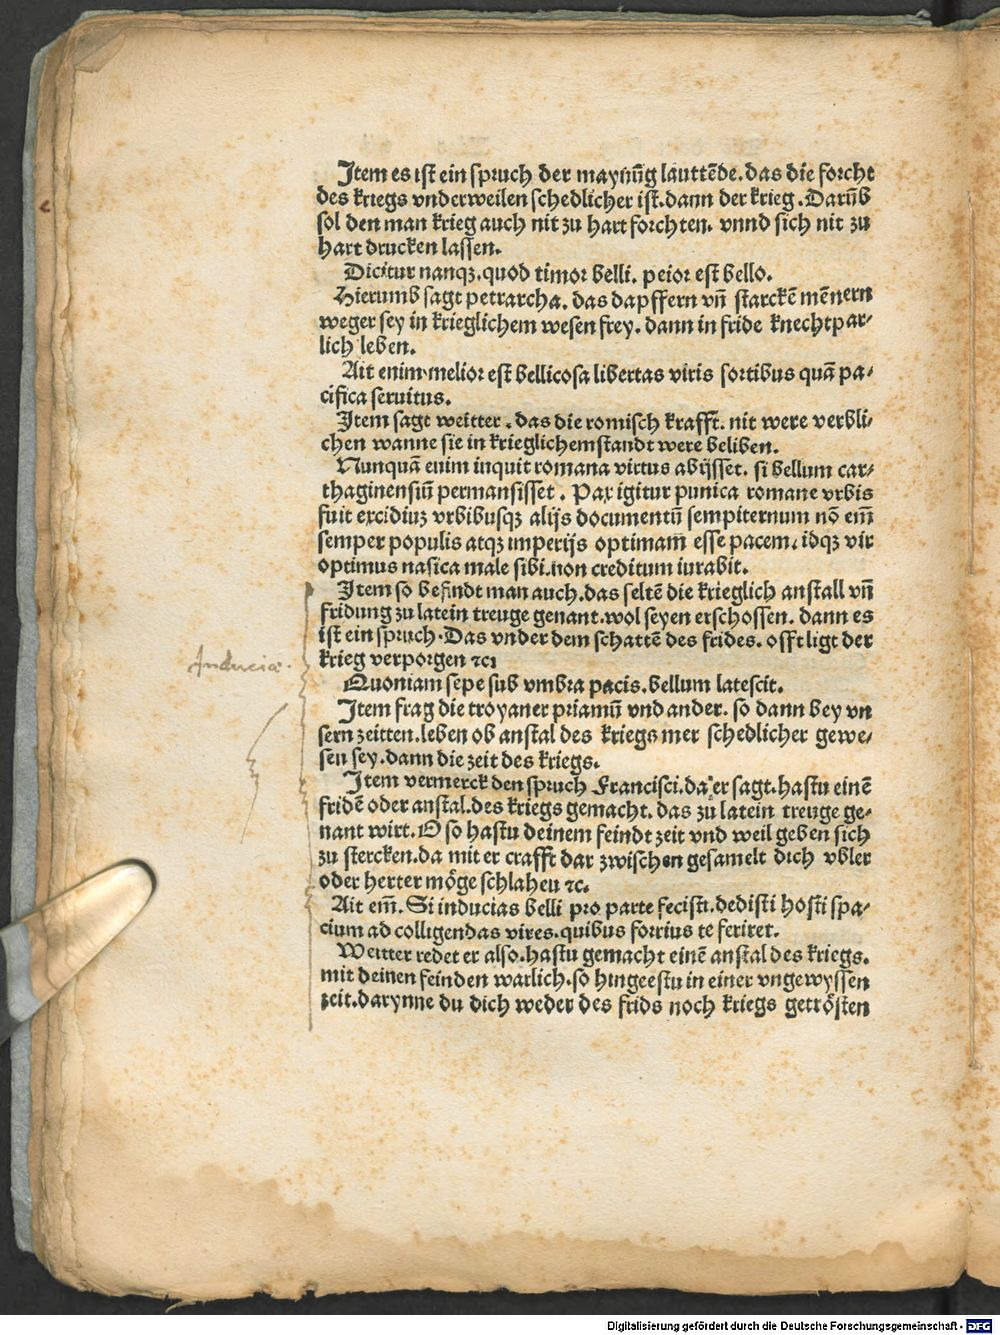 Item es ist ein spruch der maynūg lauttēde. das die forcht
des kriegs vnderweilen schedlicher ist. dann der krieg. Darūb
sol den man krieg auch nit zu hart forchten. vnnd sich nit zu
hart drucken lassen.
Dicitur nanqꝫ. quod timor belli. peior est bello.
Hierumb sagt petrarcha. das dapffern vn̄ starckē mēnern
weger sey in krieglichem wesen frey. dann in fride knechtpar⸗
lich leben.
Ait enim melior est bellicosa libertas viris fortibus quā pa⸗
cifica seruitus.
Item sagt weitter. das die romisch krafft. nit were verbli⸗
chen wanne sie in krieglichem standt were beliben.
Nunquā enim inquit romana virtus abijsset. si bellum car⸗
thaginensiū permansisset. Pax igitur punica romane vrbis
fuit excidiuꝫ vrbibusqꝫ alijs documentū sempiternum nō em̄
semper populis atqꝫ imperijs optimam̄ esse pacem. idqꝫ vir
optimus nasica male sibi. non creditum iurabit.
Item so befindt man auch. das seltē die krieglich anstall vn̄
fridung zu latein treuge genant. wol seyen erschossen. dann es
ist ein spruch. Das vnder dem schattē des frides. offt ligt der
krieg verporgen ⁊c.
Induciæ.
Quoniam sepe sub vmbra pacis. bellum latescit.
Item frag die troyaner priamū vnd ander. so dann bey vn
sern zeitten. leben ob anstal des kriegs mer schedlicher gewe⸗
sen sey. dann die zeit des kriegs.
Item vermerck den spruch Francisci. da er sagt. hastu einē
fridē oder anstal. des kriegs gemacht. das zu latein treuge ge⸗
nant wirt. O so hastu deinem feindt zeit vnd weil geben sich
zu stercken. da mit er crafft dar zwischen gesamelt dich vbler
oder herter möge schlahen ⁊c.
Ait em̄. Si inducias belli pro parte fecisti. dedisti hosti spa⸗
cium ad colligendas vires. quibus fortius te feriret.
Weitter redet er also. hastu gemacht einē anstal des kriegs.
mit deinen feinden warlich. so hingeestu in einer vngewyssen
zeit. darynne du dich weder des frids noch kriegs getrösten
Digitalisierung gefördert durch die Deutsche Forschungsgemeinschaft - DFG